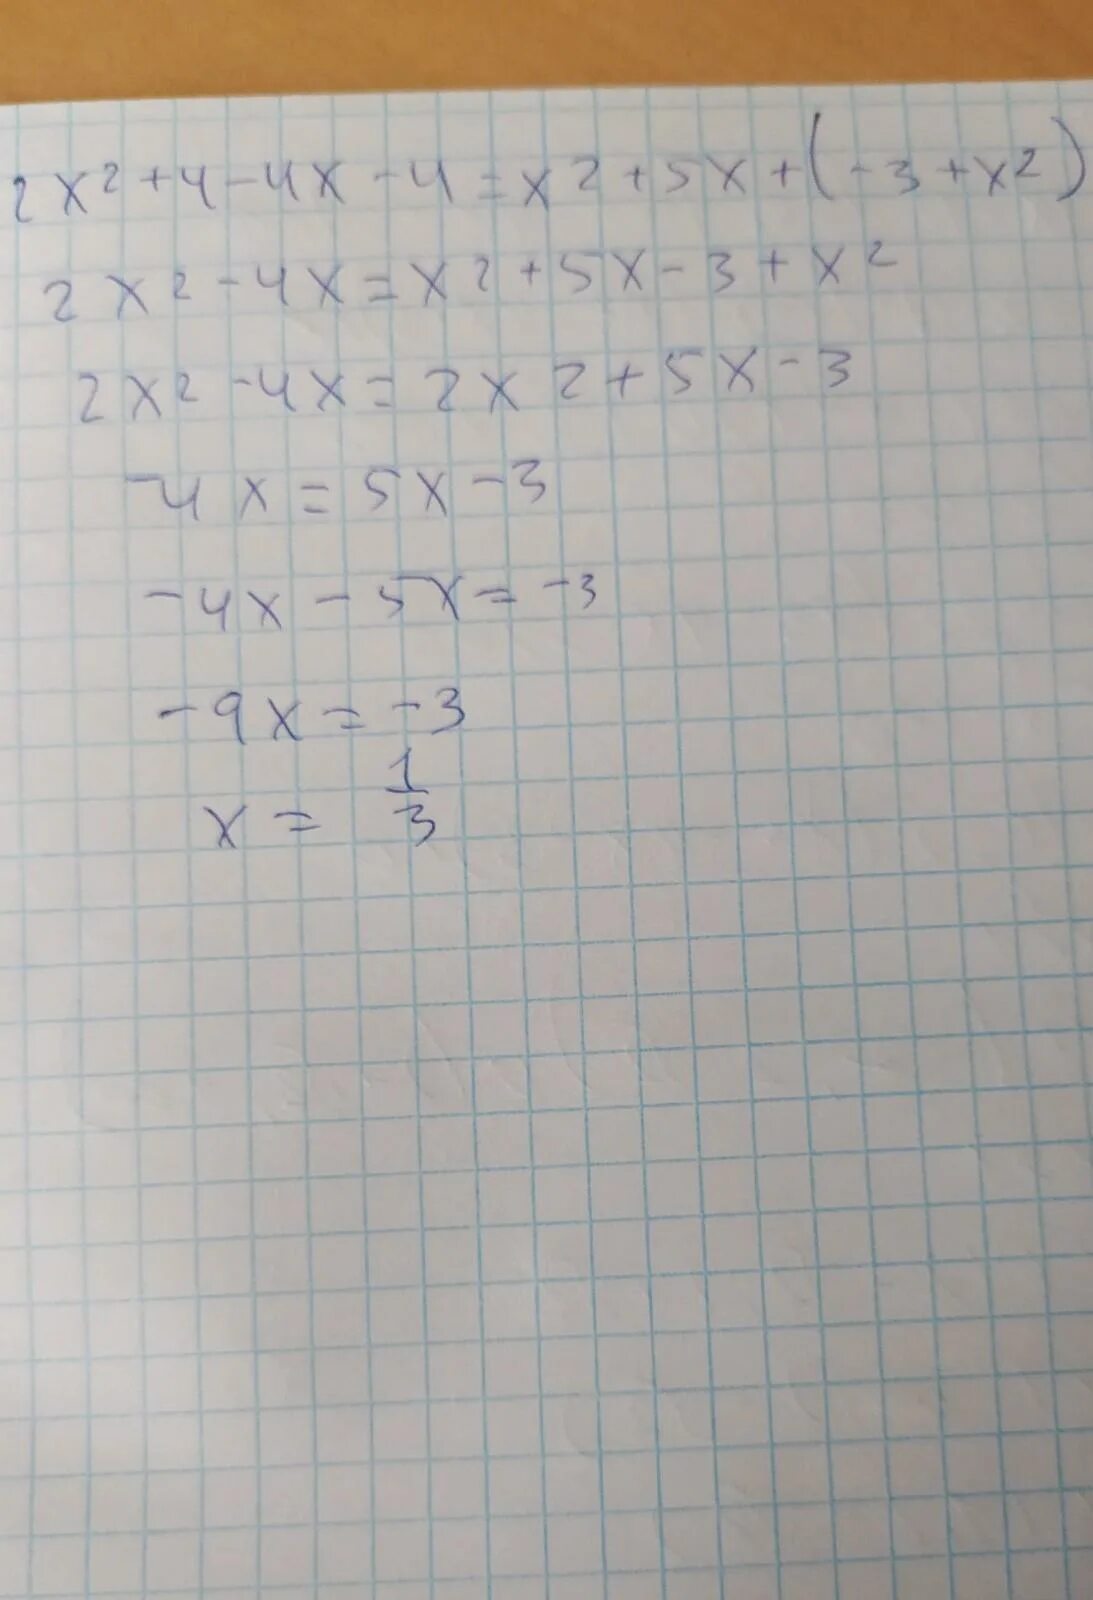 2x²+4-4x-4=x2+5x+(-3+x²)
2x²-4x=x2+5x-3+x²
2x²-4x=2x2+5x-3
-4x=5x-3
-4x-5x=-3
-9x=-3
x=1/3